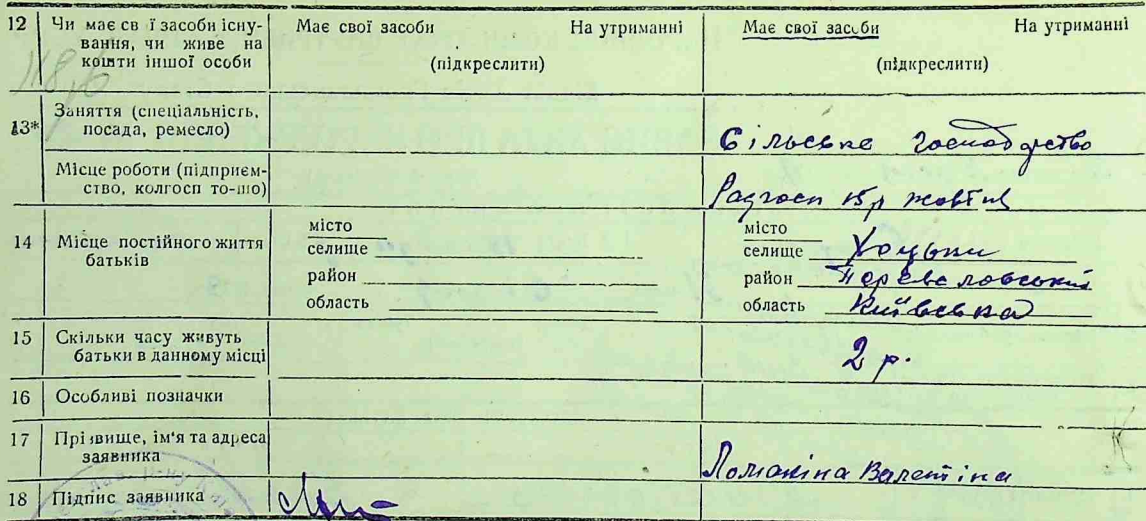 12 Чи має св ї засоби існу- Має свої засоби На утриманні Має свої засоби На утриманні
вання, чи живе на
кошти іншої особи (підкреслити) (підкреслити)
13* Заняття (спеціальність,
посада, ремесло) Сільське господарство
Місце роботи (підприєм-
ство, колгосп то-що) Радгосп 15 р жовтня
14 Місце постійного життя
батьків
місто місто
селище селище Хоцьки
район район Переяславський
область область Київська
15 Скільки часу живуть
батьки в данному місці 2 р.
16 Особливі позначки
17 Прізвище, ім'я та адреса
заявника Ломакіна Валентіна
18 Підпис заявника